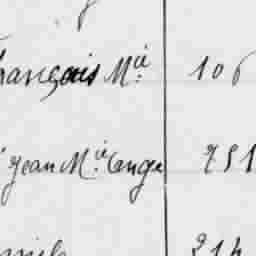 françois Mie 106
Jean Mie Ange 751
214